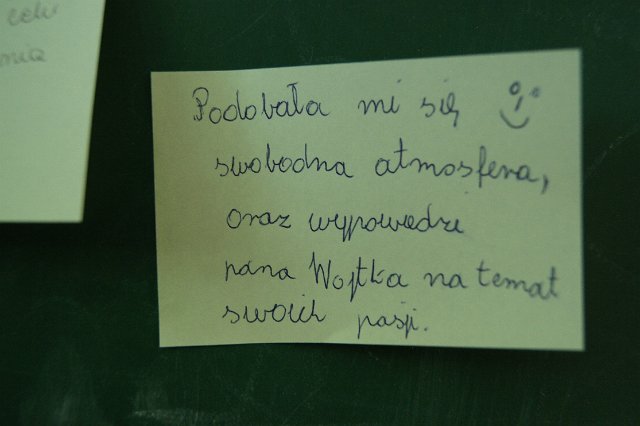 celu
Podobała mi się
swobodna atmosfera,
oraz wypowiedzi
pana Wojtka na temat
swoich pasji.